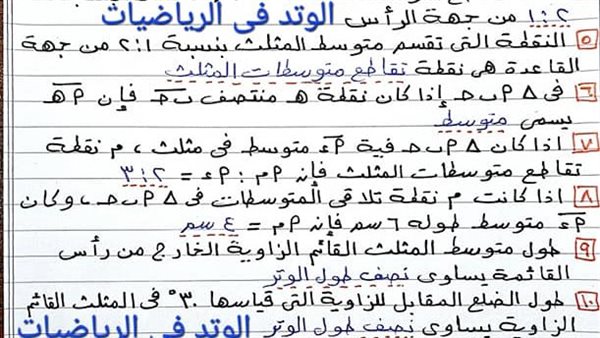 ٢:١ من جهة الرأس الوتد فى الرياضيات
٥ النقطة التى تقسم متوسط المثلث بنسبة ٢:١ من جهة
القاعدة هى نقطة تقاطع متوسطات المثلث
٦ فى △ P ب حـ إذا كان نقطة هـ منتصف ب حـ فإن P هـ
يسمى متوسط
٧ اذا كان △ P ب حـ فية P ء متوسط فى مثلث ، م نقطة
تقاطع متوسطات المثلث فإن P م : P ء = ٢:٣
٨ اذا كانت م نقطة تلاقى المتوسطات فى △ P ب حـ ، وكان
P ء متوسط طوله ٦ سم فإن P م = ٤ سم
٩ طول متوسط المثلث القائم الزاوية الخارج من رأس
القائمة يساوى نصف طول الوتر
١٠ طول الضلع المقابل للزاوية التى قياسها ٣٠° فى المثلث القائم
الزاوية يساوى نصف طول الوتر الوتد فى الرياضيات